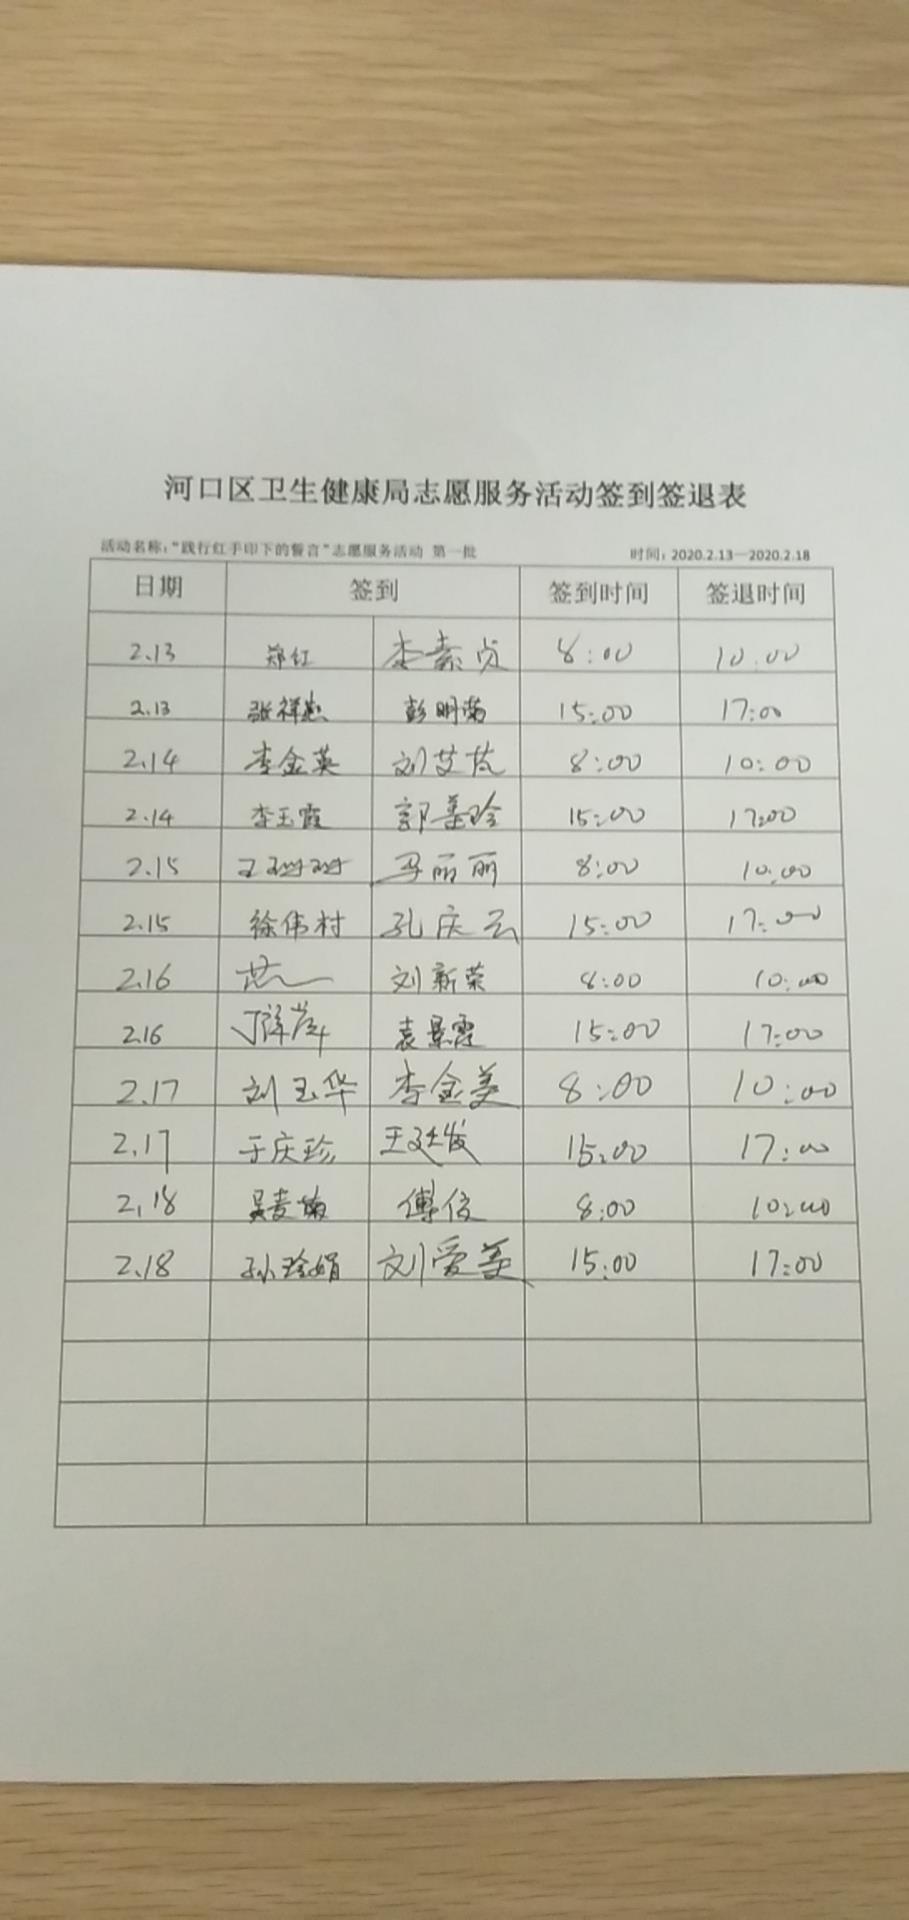 河口区卫生健康局志愿服务活动签到签退表
活动名称:“践行红手印下的誓言”志愿服务活动 第一批 时间:2020.2.13—2020.2.18
日期 签到 签到时间 签退时间
2.13 郑红 李素贞 8:00 10:00
2.13 张祥忠 彭明菊 15:00 17:00
2.14 李金英 刘艾芹 8:00 10:00
2.14 李玉霞 郭美玲 15:00 17:00
2.15 王珊珊 马丽丽 8:00 10:00
2.15 徐伟村 孔庆云 15:00 17:00
2.16 刘新荣 8:00 10:00
2.16 袁景霞 15:00 17:00
2.17 刘玉华 李金美 8:00 10:00
2.17 于庆珍 王廷发 15:00 17:00
2.18 傅俊 8:00 10:00
2.18 孙玲娟 刘爱美 15:00 17:00